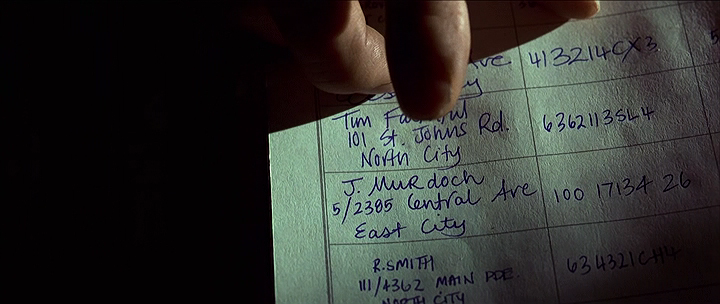 Ave
413214CX3
Tim
101 St. Johns Rd.
North City
6362113SL4
J. Murdoch
5/2385 Central Ave
East City
100 17134 26
R.SMITH
111/4362 MAIN PDE.
NORTH CITY
634321CH4